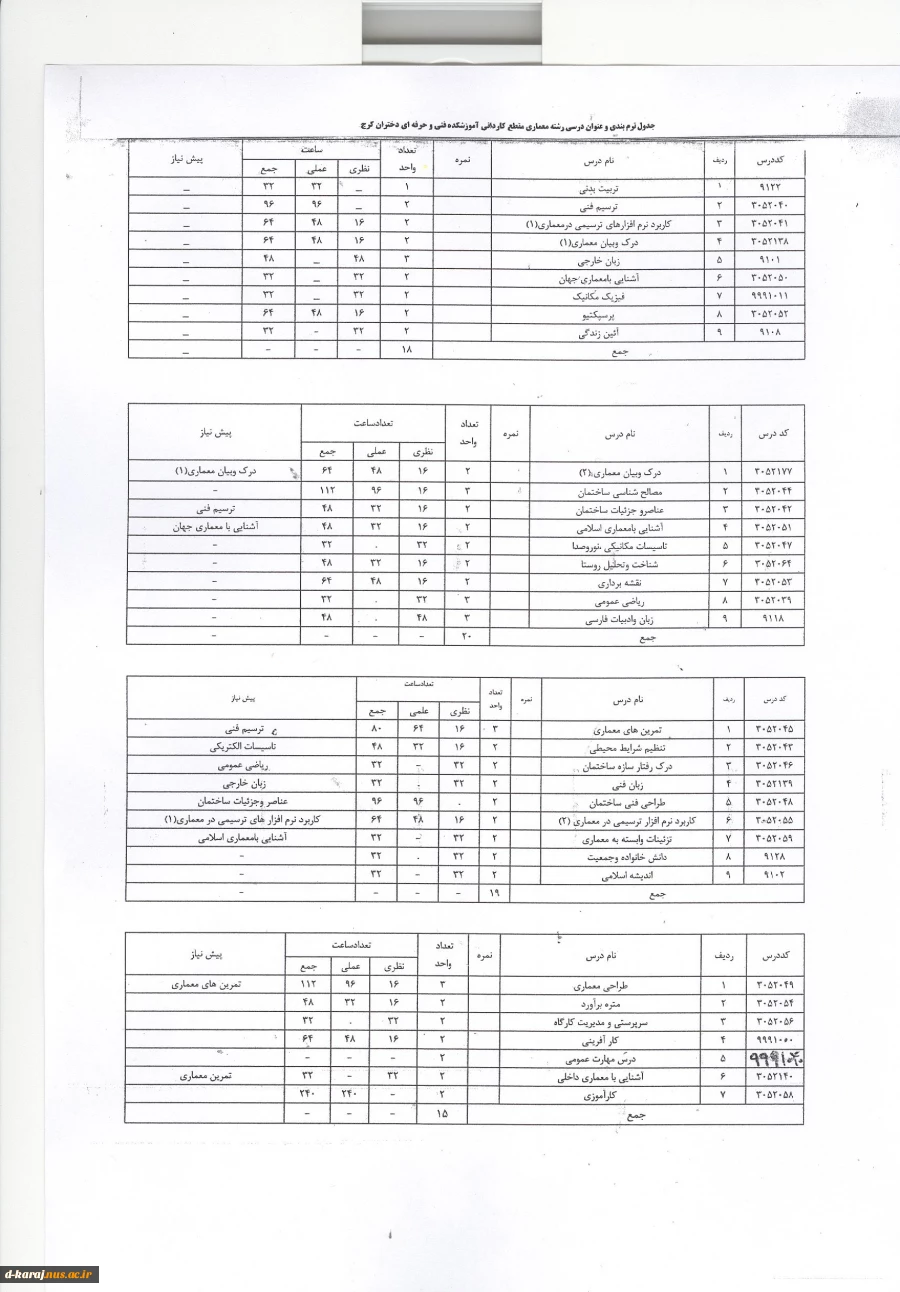 جدول ترم بندی و عنوان درسی رشته معماری مقطع کاردانی آموزشکده فنی و حرفه ای دختران کرج
کددرس ردیف نام درس نمره تعداد واحد ساعت پیش نیاز
نظری عملی جمع
۹۱۲۲ ۱ تربیت بدنی ۱ _ ۳۲ ۳۲ _
۳۰۵۲۰۴۰ ۲ ترسیم فنی ۲ _ ۹۶ ۹۶ _
۳۰۵۲۰۴۱ ۳ کاربرد نرم افزارهای ترسیمی درمعماری(۱) ۲ ۱۶ ۴۸ ۶۴ _
۳۰۵۲۱۳۸ ۴ درک وبیان معماری(۱) ۲ ۱۶ ۴۸ ۶۴ _
۹۱۰۱ ۵ زبان خارجی ۳ ۴۸ _ ۴۸ _
۳۰۵۲۰۵۰ ۶ آشنایی بامعماری جهان ۲ ۳۲ _ ۳۲ _
۹۹۹۱۰۱۱ ۷ فیزیک مکانیک ۲ ۳۲ _ ۳۲ _
۳۰۵۲۰۵۲ ۸ پرسپکتیو ۲ ۱۶ ۴۸ ۶۴ _
۹۱۰۸ ۹ آئین زندگی ۲ ۳۲ - ۳۲ _
جمع ۱۸ - - - _
کد درس ردیف نام درس نمره تعداد واحد تعدادساعت پیش نیاز
نظری عملی جمع
۳۰۵۲۱۷۷ ۱ درک وبیان معماری(۲) ۲ ۱۶ ۴۸ ۶۴ درک وبیان معماری(۱)
۳۰۵۲۰۴۴ ۲ مصالح شناسی ساختمان ۳ ۱۶ ۹۶ ۱۱۲ -
۳۰۵۲۰۴۲ ۳ عناصرو جزئیات ساختمان ۲ ۱۶ ۳۲ ۴۸ ترسیم فنی
۳۰۵۲۰۵۱ ۴ آشنایی بامعماری اسلامی ۲ ۱۶ ۳۲ ۴۸ آشنایی با معماری جهان
۳۰۵۲۰۴۷ ۵ تاسیسات مکانیکی ،نوروصدا ۲ ۳۲ . ۳۲ -
۳۰۵۲۰۶۴ ۶ شناخت وتحلیل روستا ۲ ۱۶ ۳۲ ۴۸ -
۳۰۵۲۰۵۳ ۷ نقشه برداری ۲ ۱۶ ۴۸ ۶۴ -
۳۰۵۲۰۳۹ ۸ ریاضی عمومی ۳ ۳۲ . ۳۲ -
۹۱۱۸ ۹ زبان وادبیات فارسی ۳ ۴۸ . ۴۸ -
جمع ۲۰ - - - -
کد درس ردیف نام درس نمره تعداد واحد تعدادساعت پیش نیاز
نظری علمی جمع
۳۰۵۲۰۴۵ ۱ تمرین های معماری ۳ ۱۶ ۶۴ ۸۰ ترسیم فنی
۳۰۵۲۰۴۳ ۲ تنظیم شرایط محیطی ۲ ۱۶ ۳۲ ۴۸ تاسیسات الکتریکی
۳۰۵۲۰۴۶ ۳ درک رفتار سازه ساختمان ۲ ۳۲ - ۳۲ ریاضی عمومی
۳۰۵۲۱۳۹ ۴ زبان فنی ۲ ۳۲ . ۳۲ زبان خارجی
۳۰۵۲۰۴۸ ۵ طراحی فنی ساختمان ۲ . ۹۶ ۹۶ عناصر وجزئیات ساختمان
۳۰۵۲۰۵۵ ۶ کاربرد نرم افزار ترسیمی در معماری (۲) ۲ ۱۶ ۴۸ ۶۴ کاربرد نرم افزار های ترسیمی در معماری(۱)
۳۰۵۲۰۵۹ ۷ تزئینات وابسته به معماری ۲ ۳۲ - ۳۲ آشنایی بامعماری اسلامی
۹۱۲۸ ۸ دانش خانواده وجمعیت ۲ ۳۲ . ۳۲ -
۹۱۰۲ ۹ اندیشه اسلامی ۲ ۳۲ - ۳۲ -
جمع ۱۹ - - - -
کددرس ردیف نام درس نمره تعداد واحد تعدادساعت پیش نیاز
نظری عملی جمع
۳۰۵۲۰۴۹ ۱ طراحی معماری ۳ ۱۶ ۹۶ ۱۱۲ تمرین های معماری
۳۰۵۲۰۵۴ ۲ متره برآورد ۲ ۱۶ ۳۲ ۴۸
۳۰۵۲۰۵۶ ۳ سرپرستی و مدیریت کارگاه ۲ ۳۲ . ۳۲
۹۹۹۱۰۵۰ ۴ کار آفرینی ۲ ۱۶ ۴۸ ۶۴
۵ درس مهارت عمومی ۲ - - -
۳۰۵۲۱۴۰ ۶ آشنایی با معماری داخلی ۲ ۳۲ - ۳۲ تمرین معماری
۳۰۵۲۰۵۸ ۷ کارآموزی ۲ - ۲۴۰ ۲۴۰
جمع ۱۵ - - -
d-karaj.nus.ac.ir